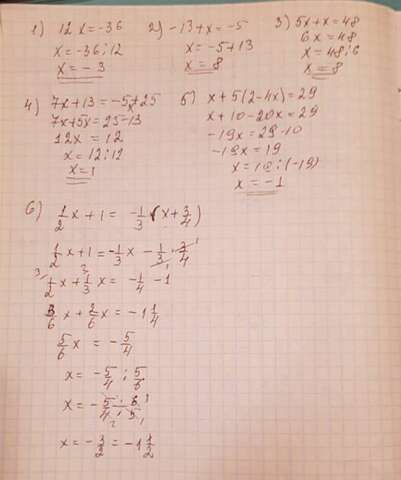 1) 12x = -36
x = -36 : 12
x = -3
2) -13 + x = -5
x = -5 + 13
x = 8
3) 5x + x = 48
6x = 48
x = 48 : 6
x = 8
4) 7x + 13 = -5x + 25
7x + 5x = 25 - 13
12x = 12
x = 12 : 12
x = 1
5) x + 5(2 - 4x) = 29
x + 10 - 20x = 29
-19x = 29 - 10
-19x = 19
x = 19 : (-19)
x = -1
6) 1/2 x + 1 = -1/3 (x + 3/4)
1/2 x + 1 = -1/3 x - 1/3 · 3/4
1/2 x + 1/3 x = -1/4 - 1
3/6 x + 2/6 x = -1 1/4
5/6 x = -5/4
x = -5/4 : 5/6
x = -5/4 · 6/5
x = -3/2 = -1 1/2